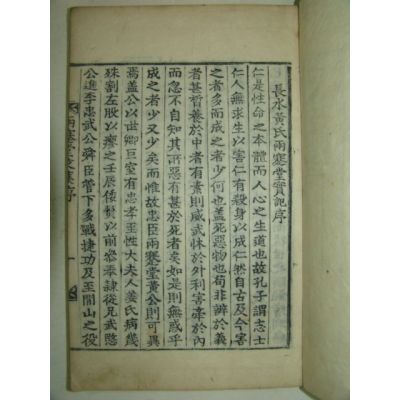 長水黃氏兩蹇堂實記序
仁是性命之本體而人心之生道也故孔子謂志士
仁人無求生以害仁有殺身以成仁然自古及今害
仁者多成仁者少何也盖死惡物也苟非辨於義
者甚晢養於中者有素則威武怵於外利害牽於內
而忽不知其所惡有甚於死者矣如是則無惑乎
成之者少又少矣而惟故忠臣兩蹇堂黃公則可異
焉盖公以世卿巨室有忠孝至性大夫人姜氏病幾
殊割左股以療之壬辰倭亂以前叅奉隷從兄武愍
公進李忠武公舜臣管下多戰捷功及至閒山之役